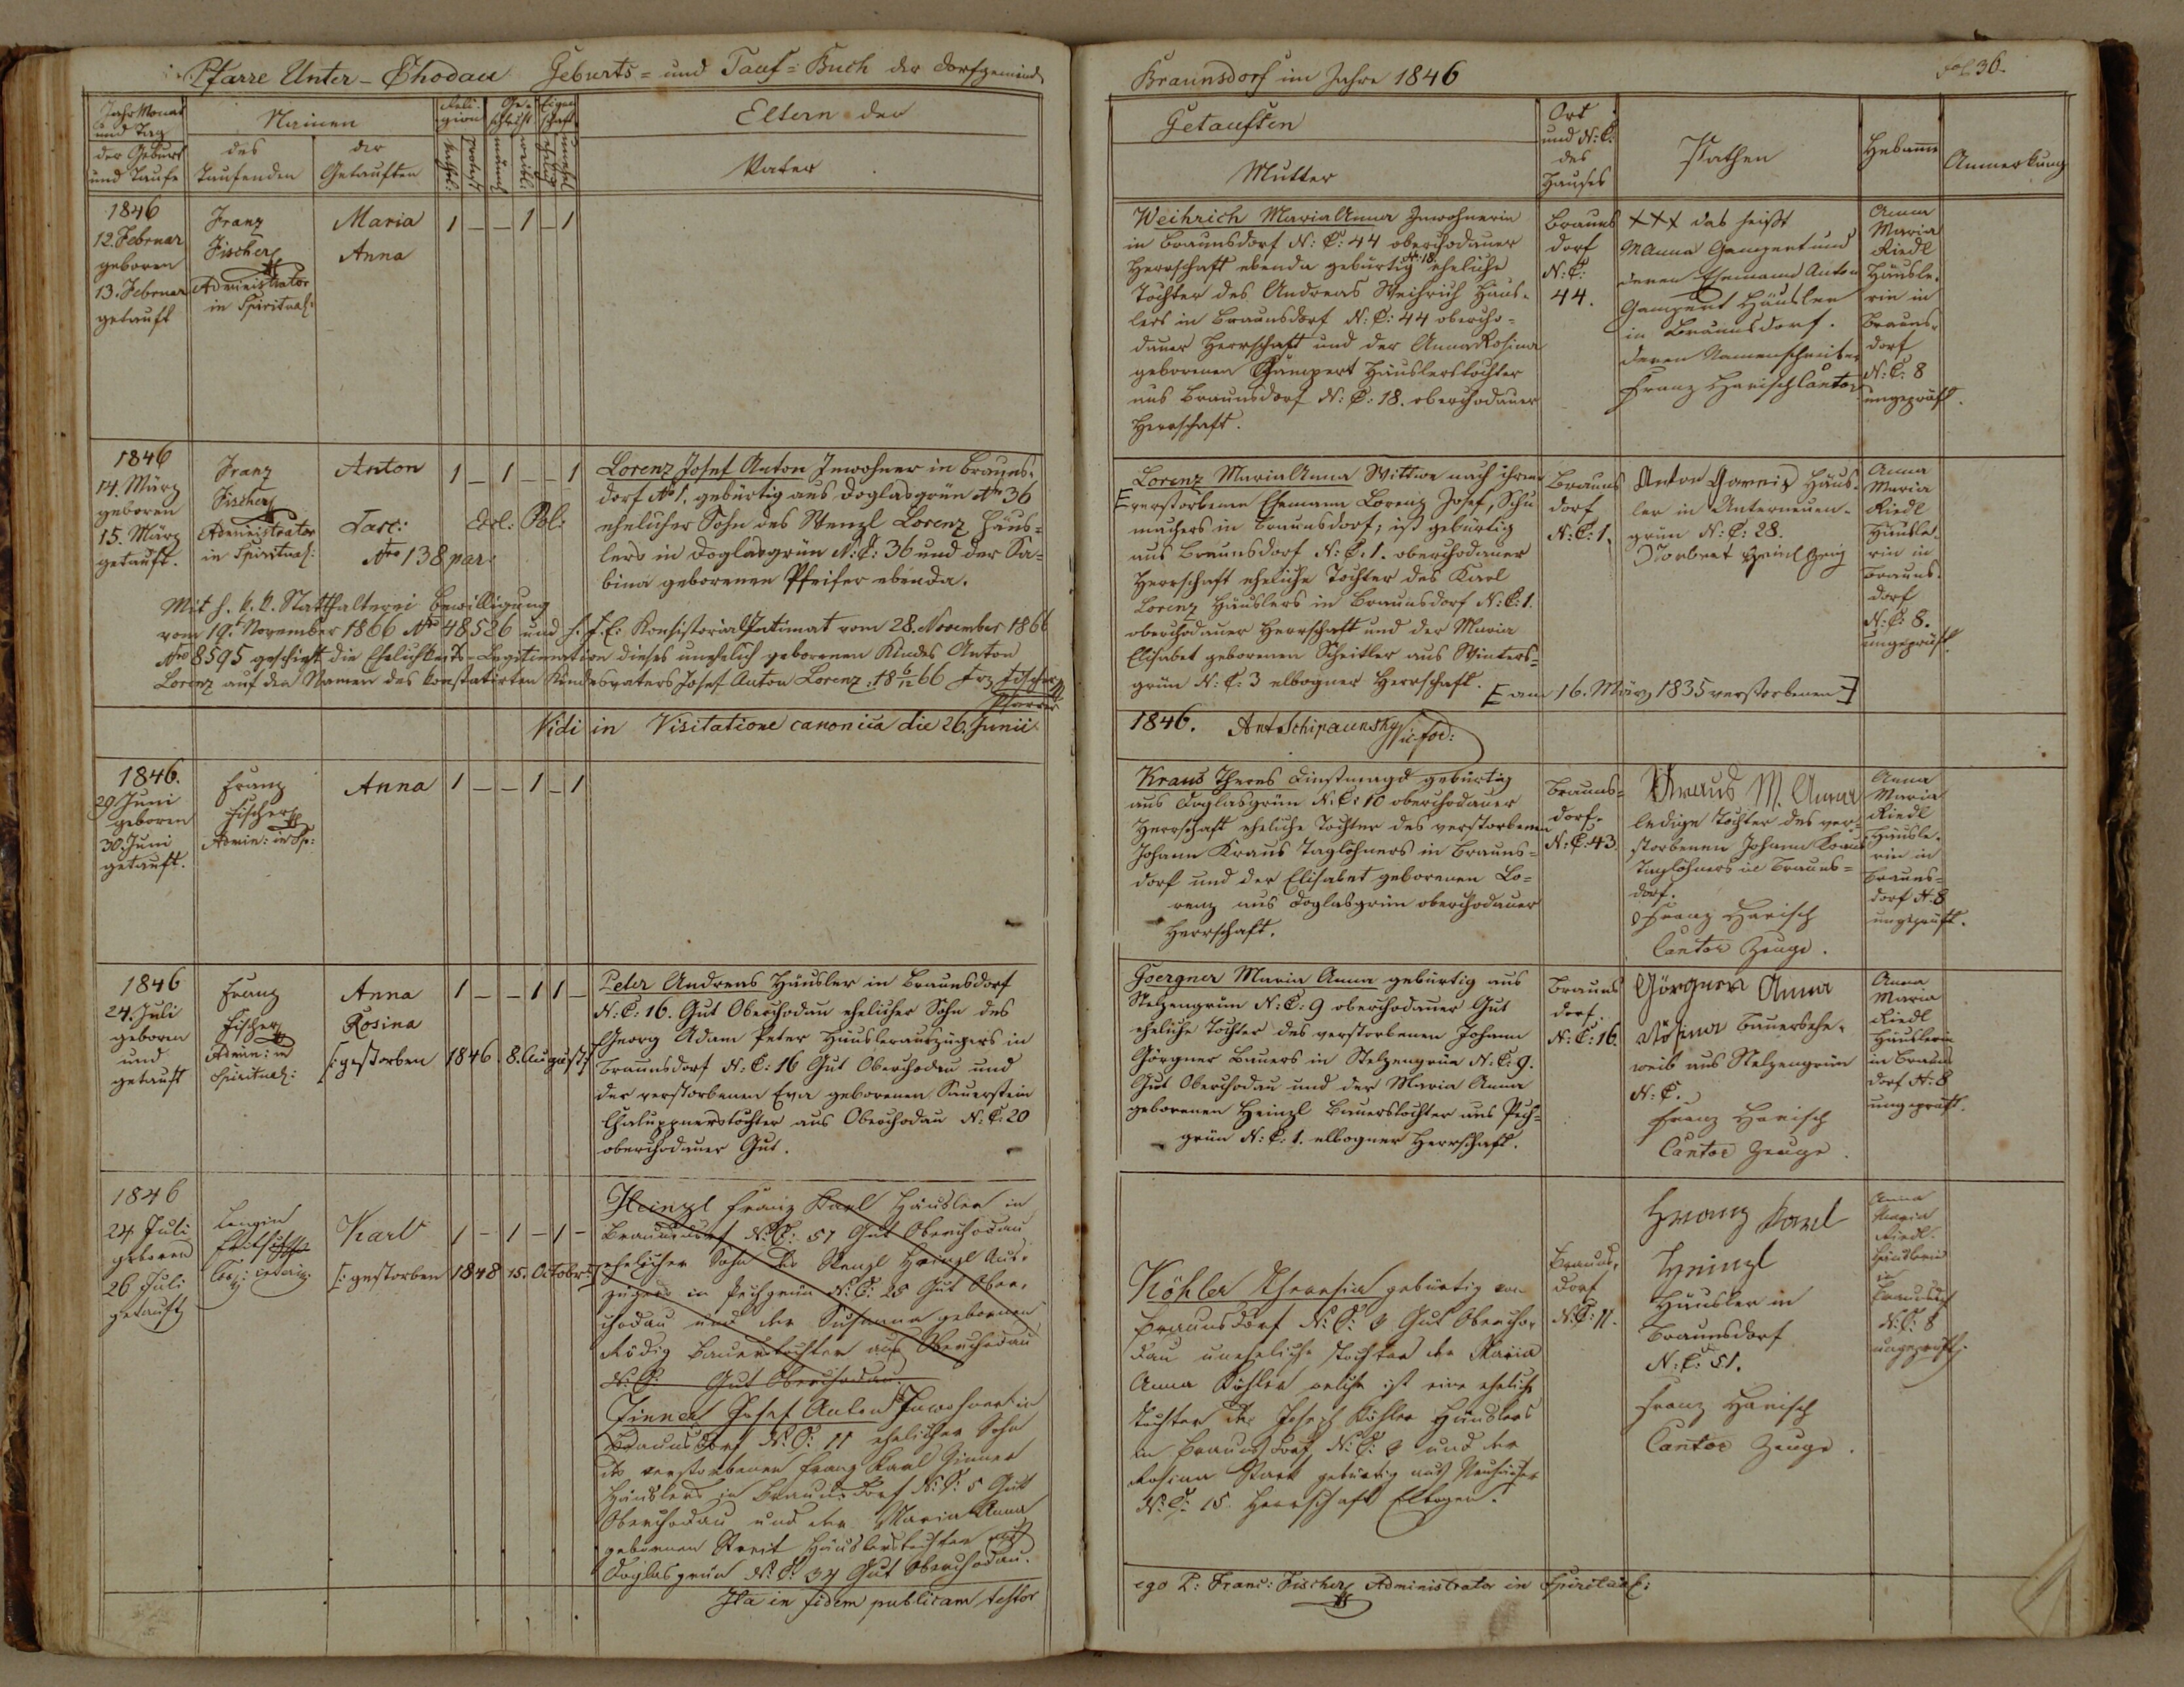 Pfarre Unter-Chodau Geburts- und Tauf-Buch der Dorfgemeinde
Braunsdorf im Jahre 1846
fol. 36.
Jahr Monat und Tag
der Geburt und Taufe
Namen
des Taufenden
der Getauften
Religion
kathol:
protest
Geschlecht
männl
weibl:
Eigenschaft
ehelich
unehel
Eltern der
Vater
Getauften
Mutter
Ort und N:C: des Hauses
Pathen
Hebamme
Anmerkung
1846
12. Februar
geboren
13. Februar
getauft
Franz
Fischer
Administrator
in Spiritual:
Maria
Anna
1 – – 1 – 1
Weihrich Maria Anna Inwohnerin
in Braunsdorf N:C: 44 oberchodauer
Herrschaft ebenda gebürtig N:18 eheliche
Tochter des Andreas Weihrich Häus-
lers in Braunsdorf N:C: 44 obercho-
dauer Herrschaft und der Anna Rosina
geborenen Gampert Häuslerstochter
aus Braunsdorf N:C: 18. oberchodauer
Herrschaft.
Brauns
dorf
N:C:
44.
XXX das heißt
M Anna Gampert und
deren Ehemann Anton
Gampert Häusler
in Braunsdorf.
deren Namenschreiber
Franz Harisch Cantor
Anna
Maria
Riedl
Häusle-
rin in
Brauns-
dorf
N:C: 8
ungeprüft.
1846
14. März
geboren
15. März
getauft.
Franz
Fischer
Administrator
in Spiritual:
Anton
1 – 1 – – 1
Fasc:
Nro 138 par:
Lorenz Josef Anton Inwohner in Brauns-
dorf No 1. gebürtig aus Doglasgrün No 36
ehelicher Sohn des Wenzl Lorenz Häus-
lers in Doglasgrün N:C: 36 und der Sa-
bina geborenen Pfeifer ebenda.
Mit h. k. k. Statthalterei Bewilligung
vom 19. November 1866 No 48526 und h. f. E: Konsistorial Intimat vom 28. November 1866
Nro 8595 geschieht die Ehelichkeits-Legitimation dieses unehelich geborenen Kindes Anton
Lorenz auf den Namen des konstatirten Kindesvaters Josef Anton Lorenz. 18 6/12 66 Frz Fischer
Pfarrer
Lorenz Maria Anna Wittwe nach ihrem
[verstorbenen Ehemann Lorenz Josef, Schu
machers in Braunsdorf; ist gebürtig
aus Braunsdorf N:C: 1. oberchodauer
Herrschaft eheliche Tochter des Karl
Lorenz Häuslers in Braunsdorf N:C: 1.
oberchodauer Herrschaft und der Maria
Elisabet geborenen Scheitler aus Winters-
grün N:C: 3 elbogner Herrschaft. [am 16. März 1835 verstorbenen]
Brauns
dorf
N:C: 1.
Anton Gareis Häus-
ler in Unterneuen-
grün N:C: 28.
Anna
Maria
Riedl
Häusle-
rin in
Brauns-
dorf
N:C: 8.
ungeprüft.
Vidi in Visitatione canonica die 26. Junii
1846. Ant Schipaunsky
1846.
29. Juni
geboren
30. Juni
getauft.
Franz
Fischer
Admin: in Sp:
Anna
1 – – 1 – 1
Kraus Theres Dienstmagd gebürtig
aus Doglasgrün N:C: 10 oberchodauer
Herrschaft eheliche Tochter des verstorbenen
Johann Kraus Taglöhners in Brauns-
dorf und der Elisabet geborenen Lo-
renz aus Doglasgrün oberchodauer
Herrschaft.
Brauns-
dorf.
N:C: 43.
Kraus M. Anna
ledige Tochter des ver-
storbenen Johann Kraus
Taglöhners in Brauns-
dorf.
Franz Harisch
Cantor Zeuge.
Anna
Maria
Riedl
Häusle-
rin in
Brauns-
dorf N: 8
ungeprüft.
1846
24. Juli
geboren
und
getauft
Franz
Fischer
Admin: in
Spiritual:
Anna
Rosina
1 – – 1 1 –
[: gestorben 1846 8. August :]
Peter Andreas Häusler in Braunsdorf
N:C: 16. Gut Oberchodau ehelicher Sohn des
Georg Adam Peter Häuslerauszügers in
Braunsdorf N:C: 16 Gut Oberchodau und
der verstorbenen Eva geborenen Sauerstein
Chaluppnerstochter aus Oberchodau N:C: 20
oberchodauer Gut.
Goergner Maria Anna gebürtig aus
Stelzengrün N:C: 9 oberchodauer Gut
eheliche Tochter des verstorbenen Johann
Görgner Bauers in Stelzengrün N:C: 9.
Gut Oberchodau und der Maria Anna
geborenen Heinzl Bauerstochter aus Pech-
grün N:C: 1. elbogner Herrschaft.
Brauns
dorf.
N:C: 16.
Görgner Anna
Rosina Bauersehe-
weib aus Stelzengrün
N:C.
Franz Harisch
Cantor Zeuge.
Anna
Maria
Riedl
Häuslerin
in Brauns
dorf N: 8
ungeprüft.
1846
24 Juli
geboren
26 Juli
getauft
Karl
1 – 1 – 1 –
[: gestorben 1848 15. October :]
Heinzl Franz Karl Häusler in
Braunsdorf N:C: 51 Gut Oberchodau
ehelicher Sohn des Wenzl Heinzl Aus-
zügers in Pechgrün N:C: 25 Gut Ober-
chodau und der Susanna gebornen
Rödig Bauerstochter aus Oberchodau
N:C: Gut Oberchodau.
Zinner Josef Anton Inwohner in
Braunsdorf N:C: 11 ehelicher Sohn
des verstorbenen Franz Karl Zinner
Häuslers in Braunsdorf N:C: 5 Gut
Oberchodau und der Maria Anna
gebornen Streit Häuslerstochter aus
Doglasgrün N:C: 34 Gut Oberchodau.
Köhler Theresia gebürtig von
Braunsdorf N:C: 9 Gut Obercho-
dau uneheliche Tochter der Maria
Anna Köhler welche ist eine eheliche
Tochter des Joseph Köhler Häuslers
in Braunsdorf N:C: 9 und der
Rosina Stark gebürtig aus Neuhäuser
N:C: 15 Herrschaft Elbogen.
Brauns-
dorf
N:C: 11.
Franz Karl
Heinzl
Häusler in
Braunsdorf
N:C: 51.
Franz Harisch
Cantor Zeuge.
Anna
Maria
Riedl
Häuslerin
in
Braunsdorf
N:C: 8
ungeprüft.
Ita in fidem publicam testor
ego P: Franc: Fischer Administrator in Spiritual: